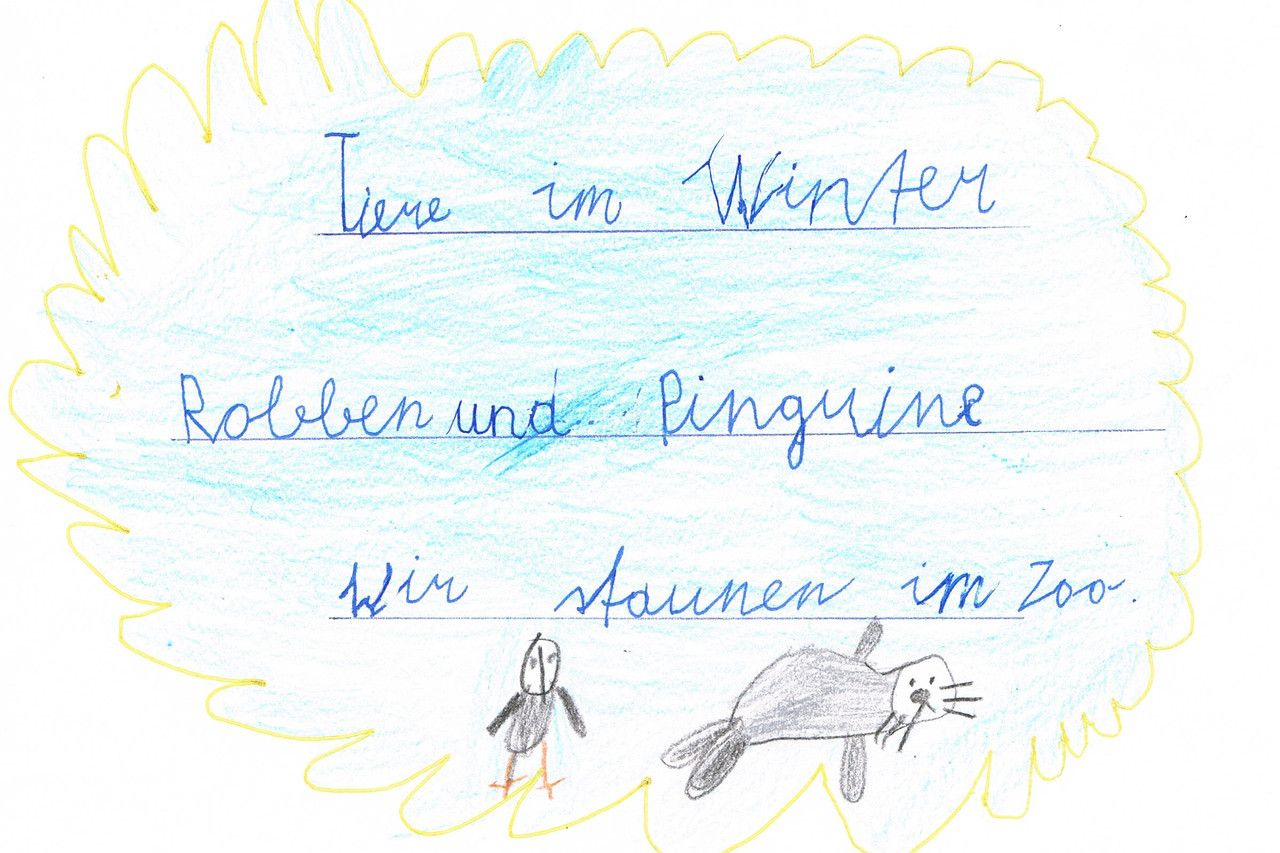 Tiere im Winter
Robben und Pinguine
Wir staunen im Zoo.